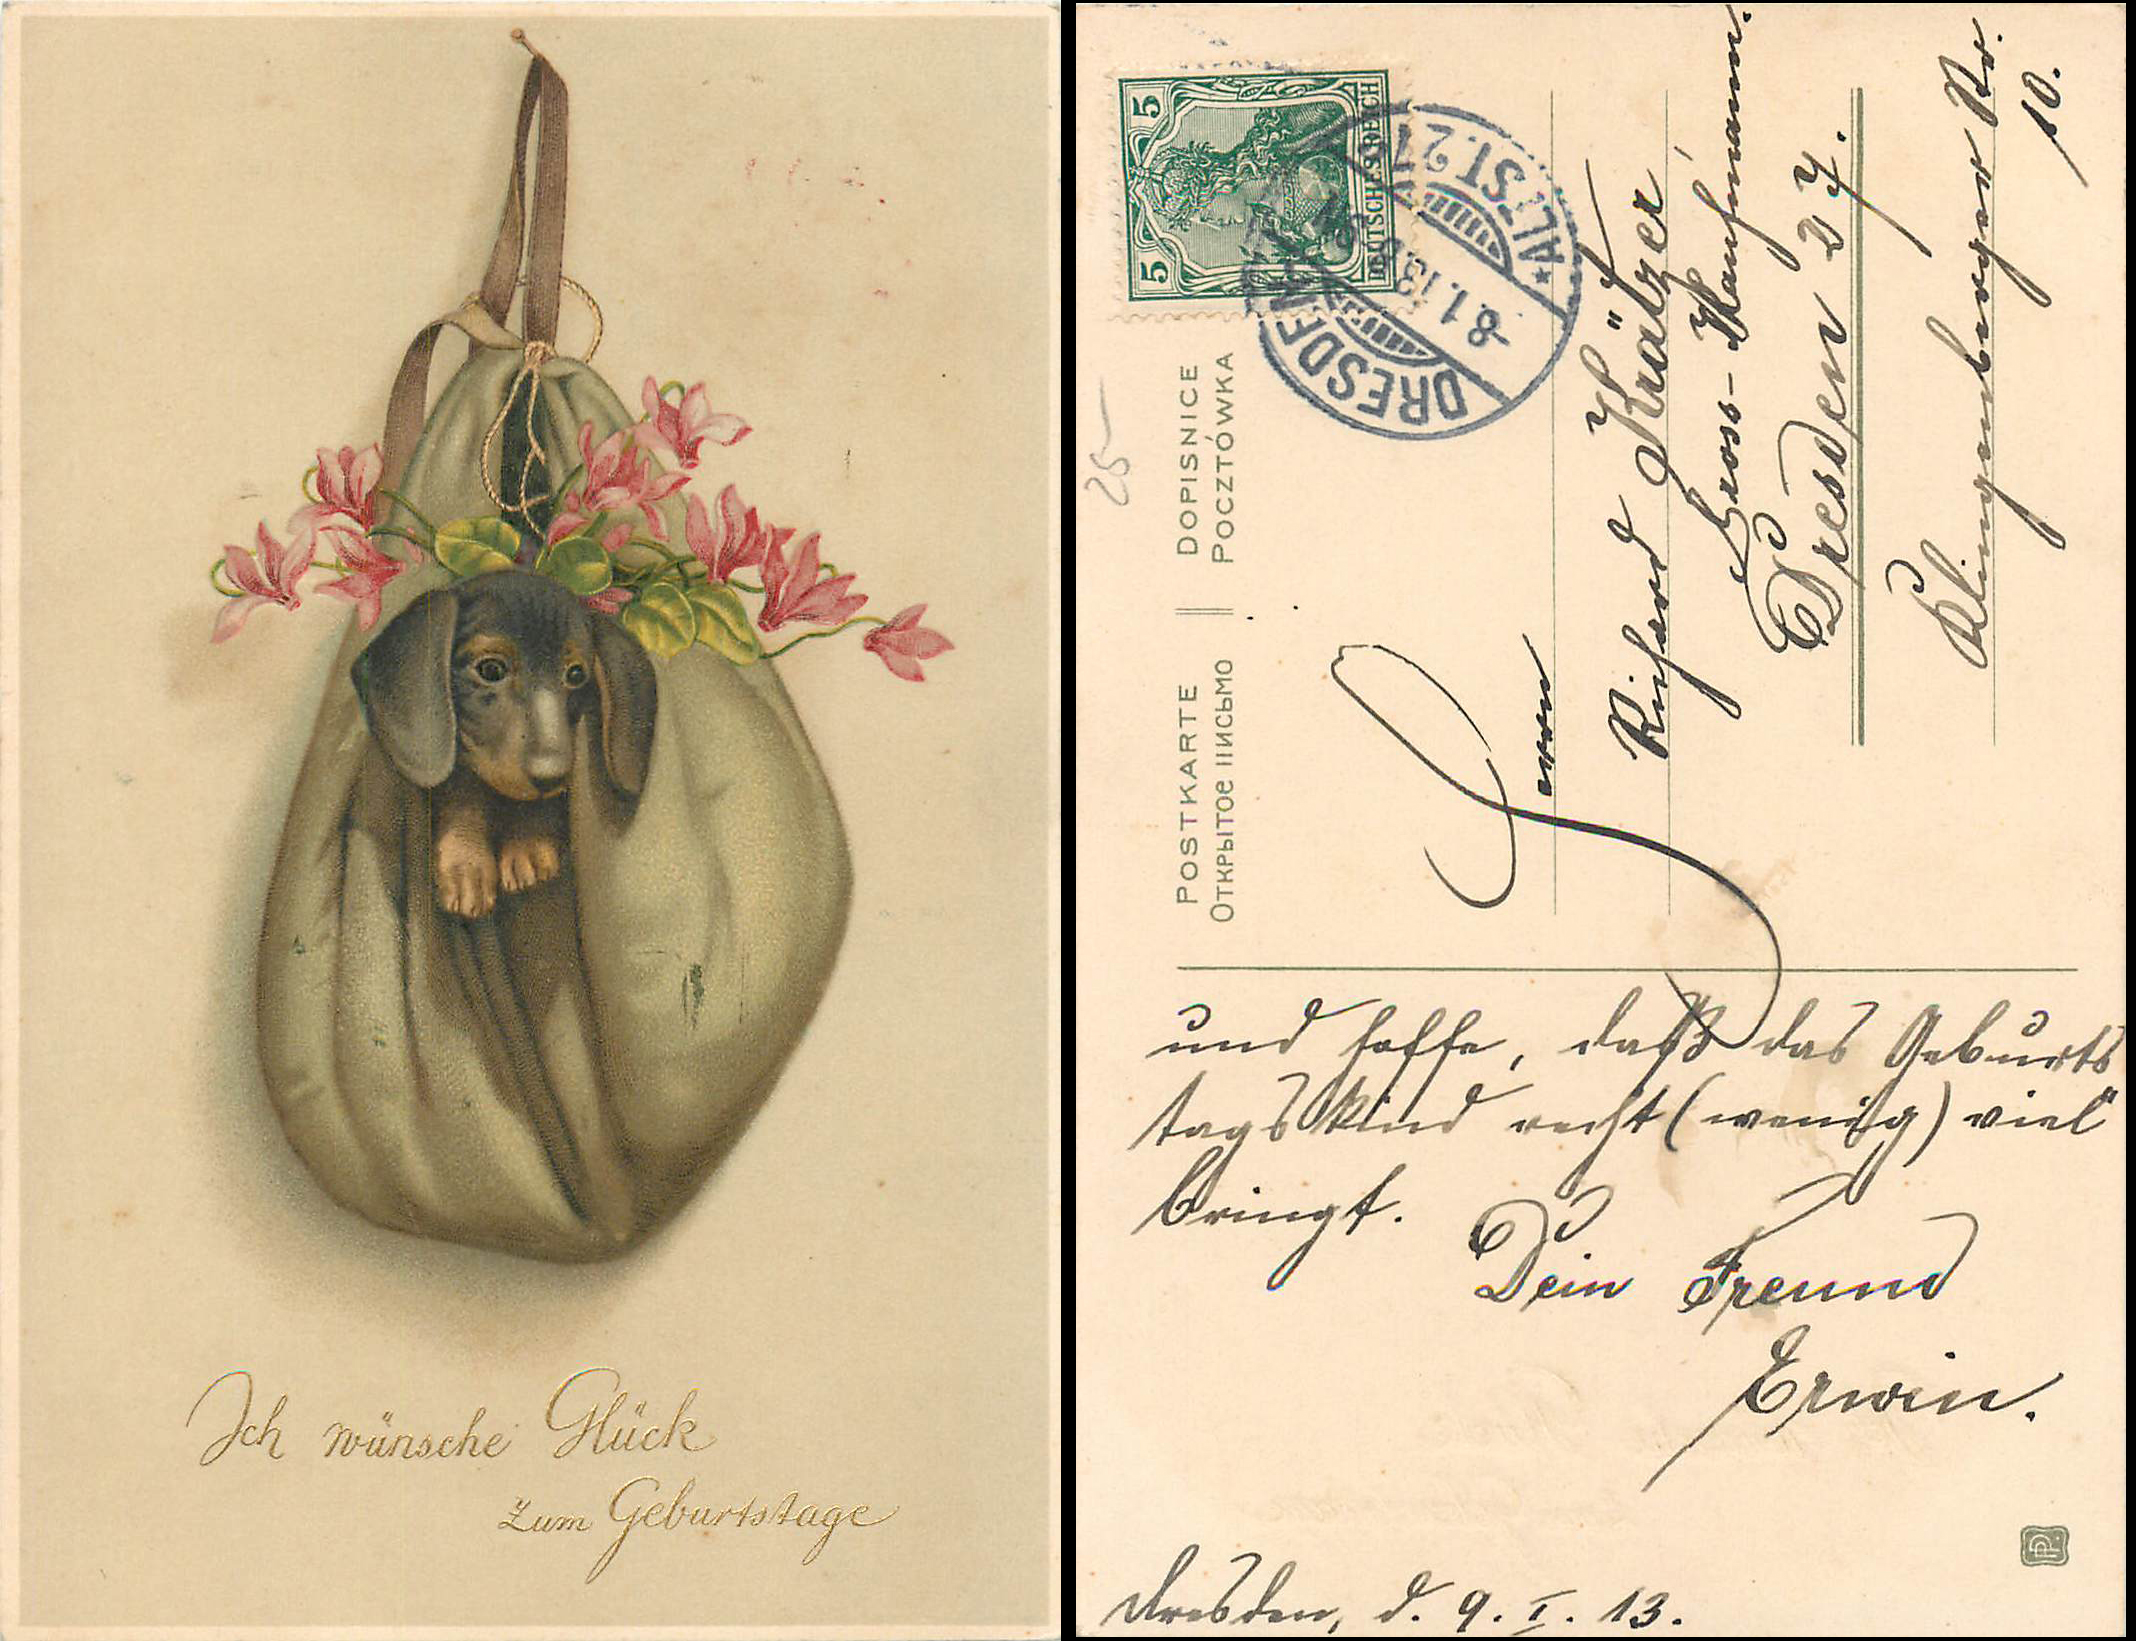 Ich wünsche Glück
zum Geburtstage
POSTKARTE
DOPISNICE
Открытое письмо
POCZTÓWKA
5
5
DEUTSCHES REICH
DRESDEN
* ALTST. 21
8.1.13
25
Herrn
Richard Krätzer
Gross-Kaufmann.
Dresden 27.
Klingenberger Str.
10.
und hoffe, daß das Geburts
tagskind recht (wenig) viel
bringt.
Dein Freund
Erwin.
Dresden, d. 9. I. 13.